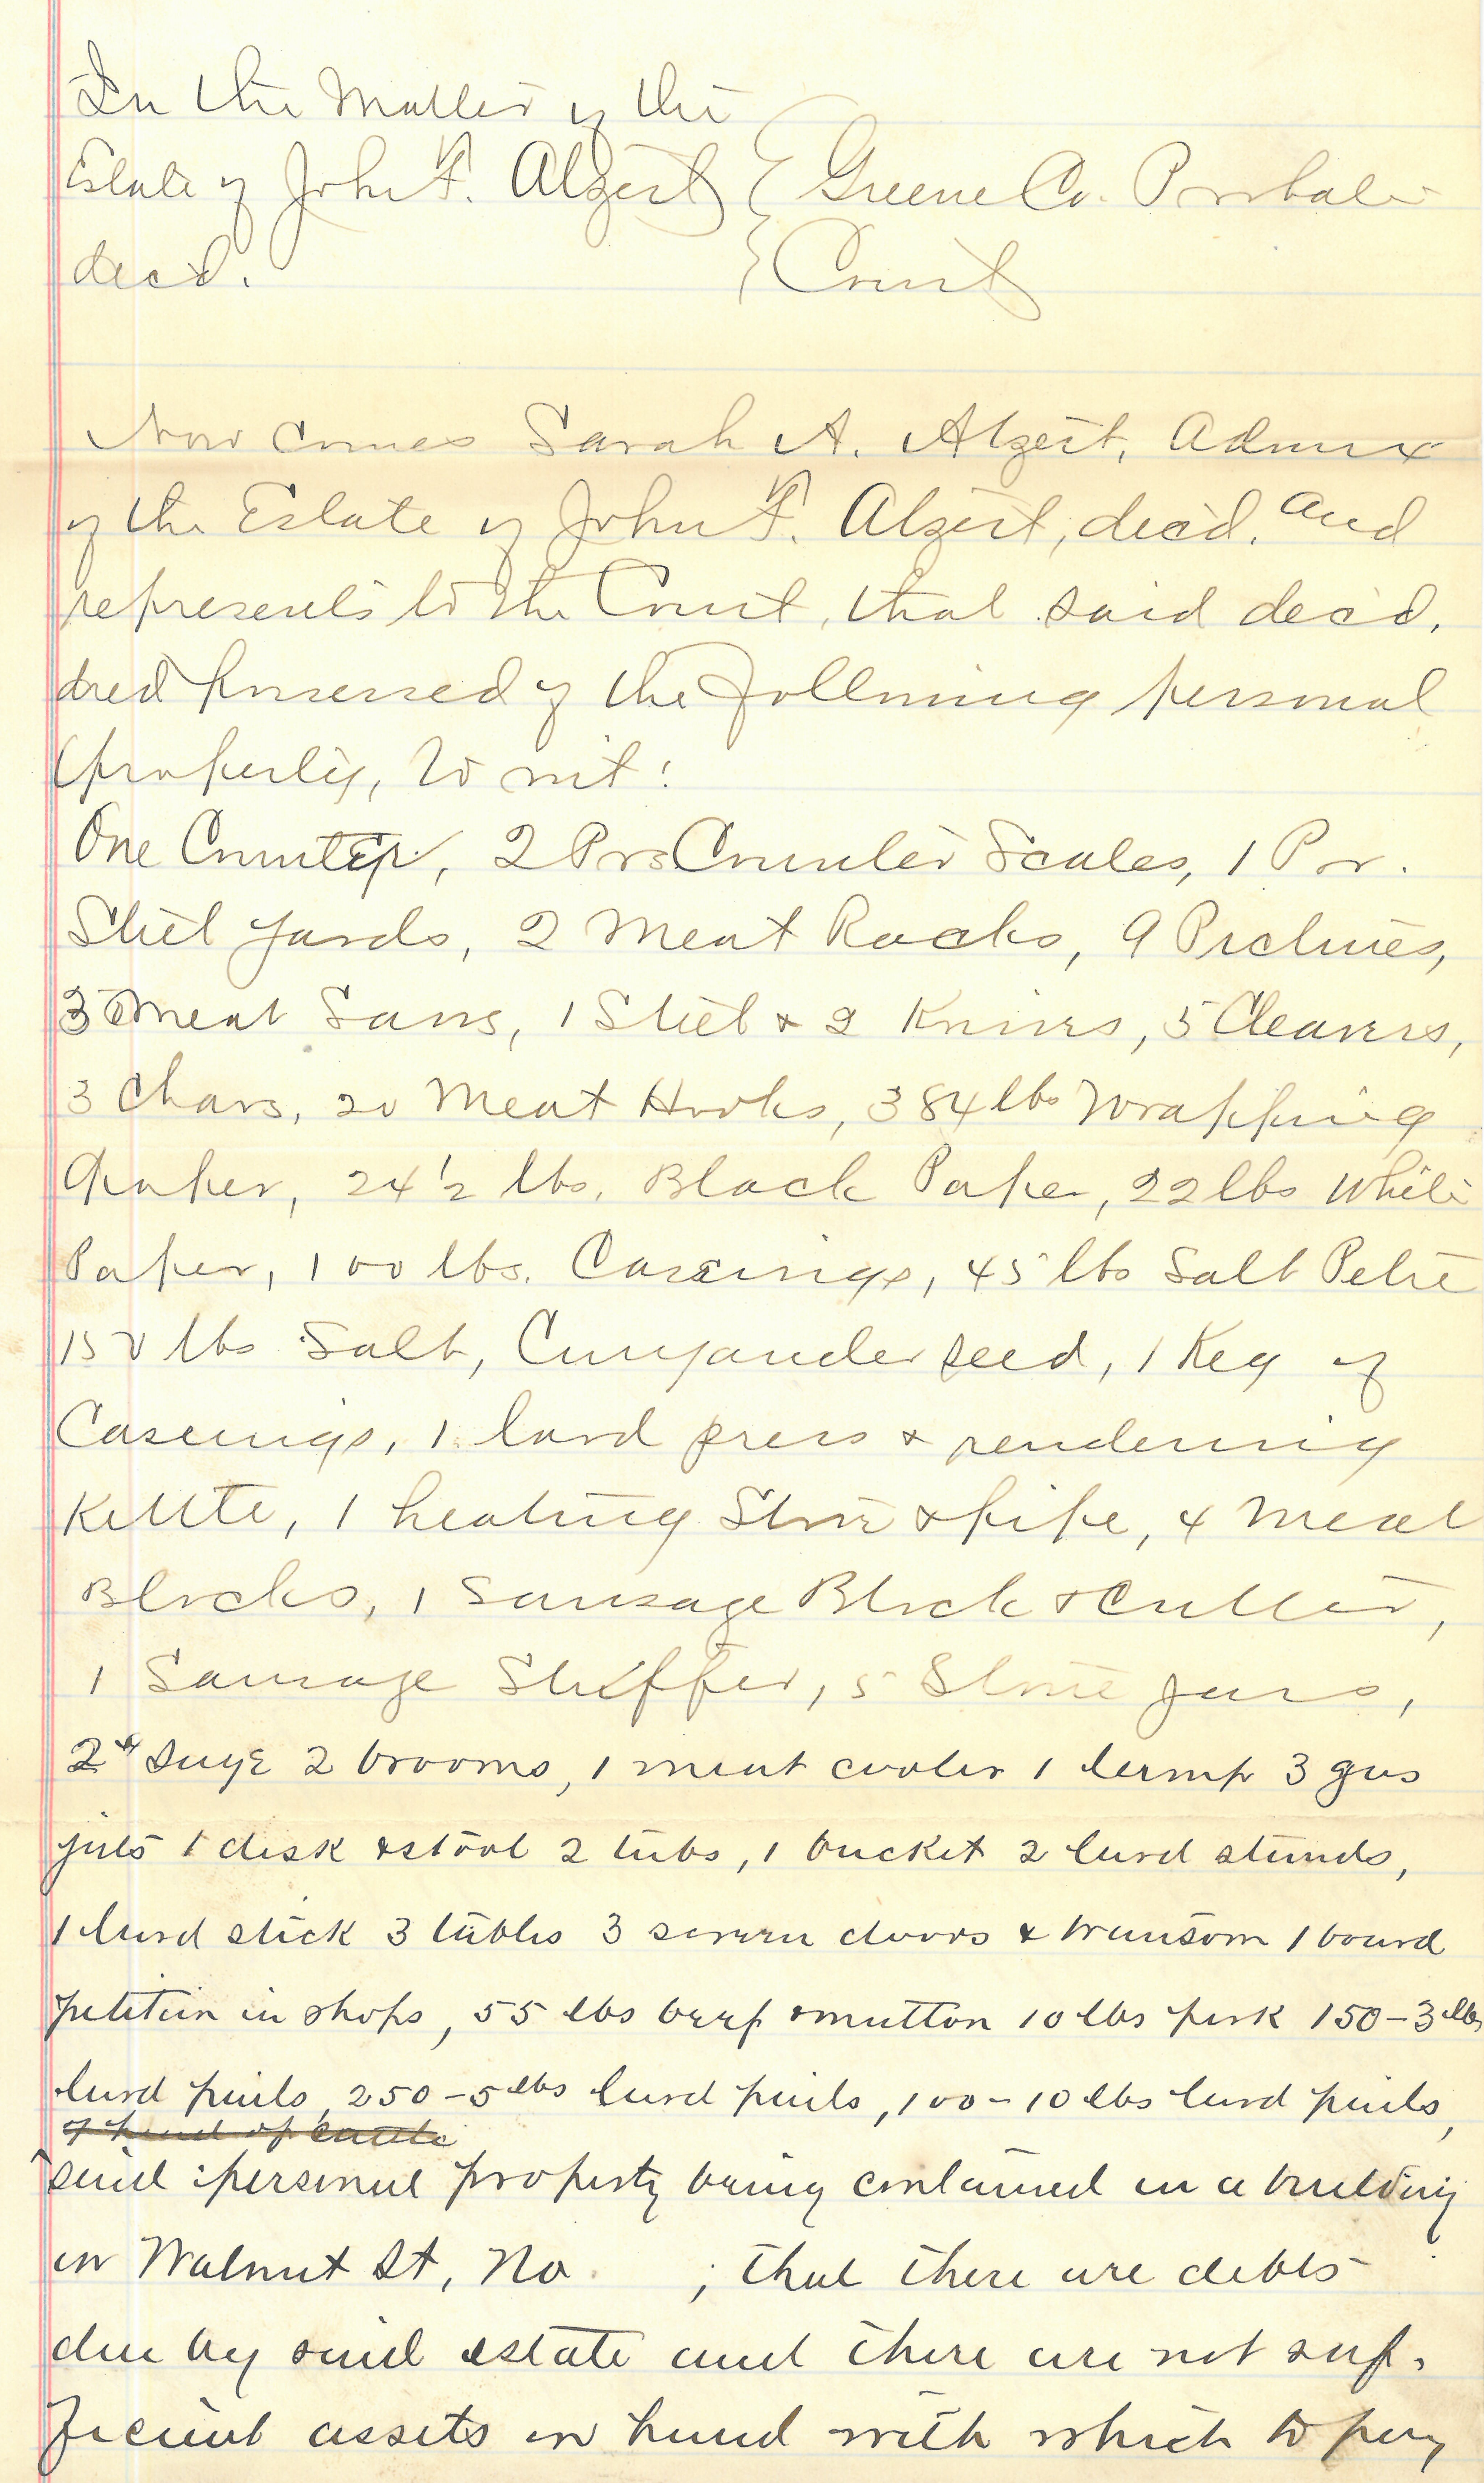 In the Matter of the
Estate of John F. Alzeit } Greene Co. Probate
decd. } Court
Now comes Sarah A. Alzeit, Admrx
of the Estate of John F. Alzeit, dec'd, and
represents to the Court, that said dec'd,
died possessed of the following personal
property, to wit:
One Counter, 2 Prs Counter Scales, 1 Pr.
Steel yards, 2 Meat Racks, 9 Pictures,
3 Meat Saws, 1 Steel & 2 Knives, 5 Cleavers,
3 Chars, 20 Meat Hooks, 384 lbs Wrapping
Paper, 24 1/2 lbs. Black Paper, 22 lbs White
Paper, 100 lbs. Cassings, 45 lbs Salt Petre
150 lbs Salt, Curyander seed, 1 Keg of
Casings, 1 lard press & rendering
Kettle, 1 heating Stove & pipe, 4 Meat
Blocks, 1 Sausage Block & Cutter,
1 Sausage Stuffer, 5 Stone Jars,
2 brooms, 1 meat cooler 1 lamp 3 gas
jets 1 desk & stool 2 tubs, 1 bucket 2 lard stands,
1 lard stick 3 tables 3 screen doors & transom 1 board
petition in shops, 55 lbs beef & mutton 10 lbs pork 150-3 lbs
lard pails, 250-5 lbs lard pails, 100-10 lbs lard pails,
head of cattle
said personal property being contained in a building
on Walnut St, No. ; that there are debts
due by said estate and there are not suf-
ficient assets on hand with which to pay